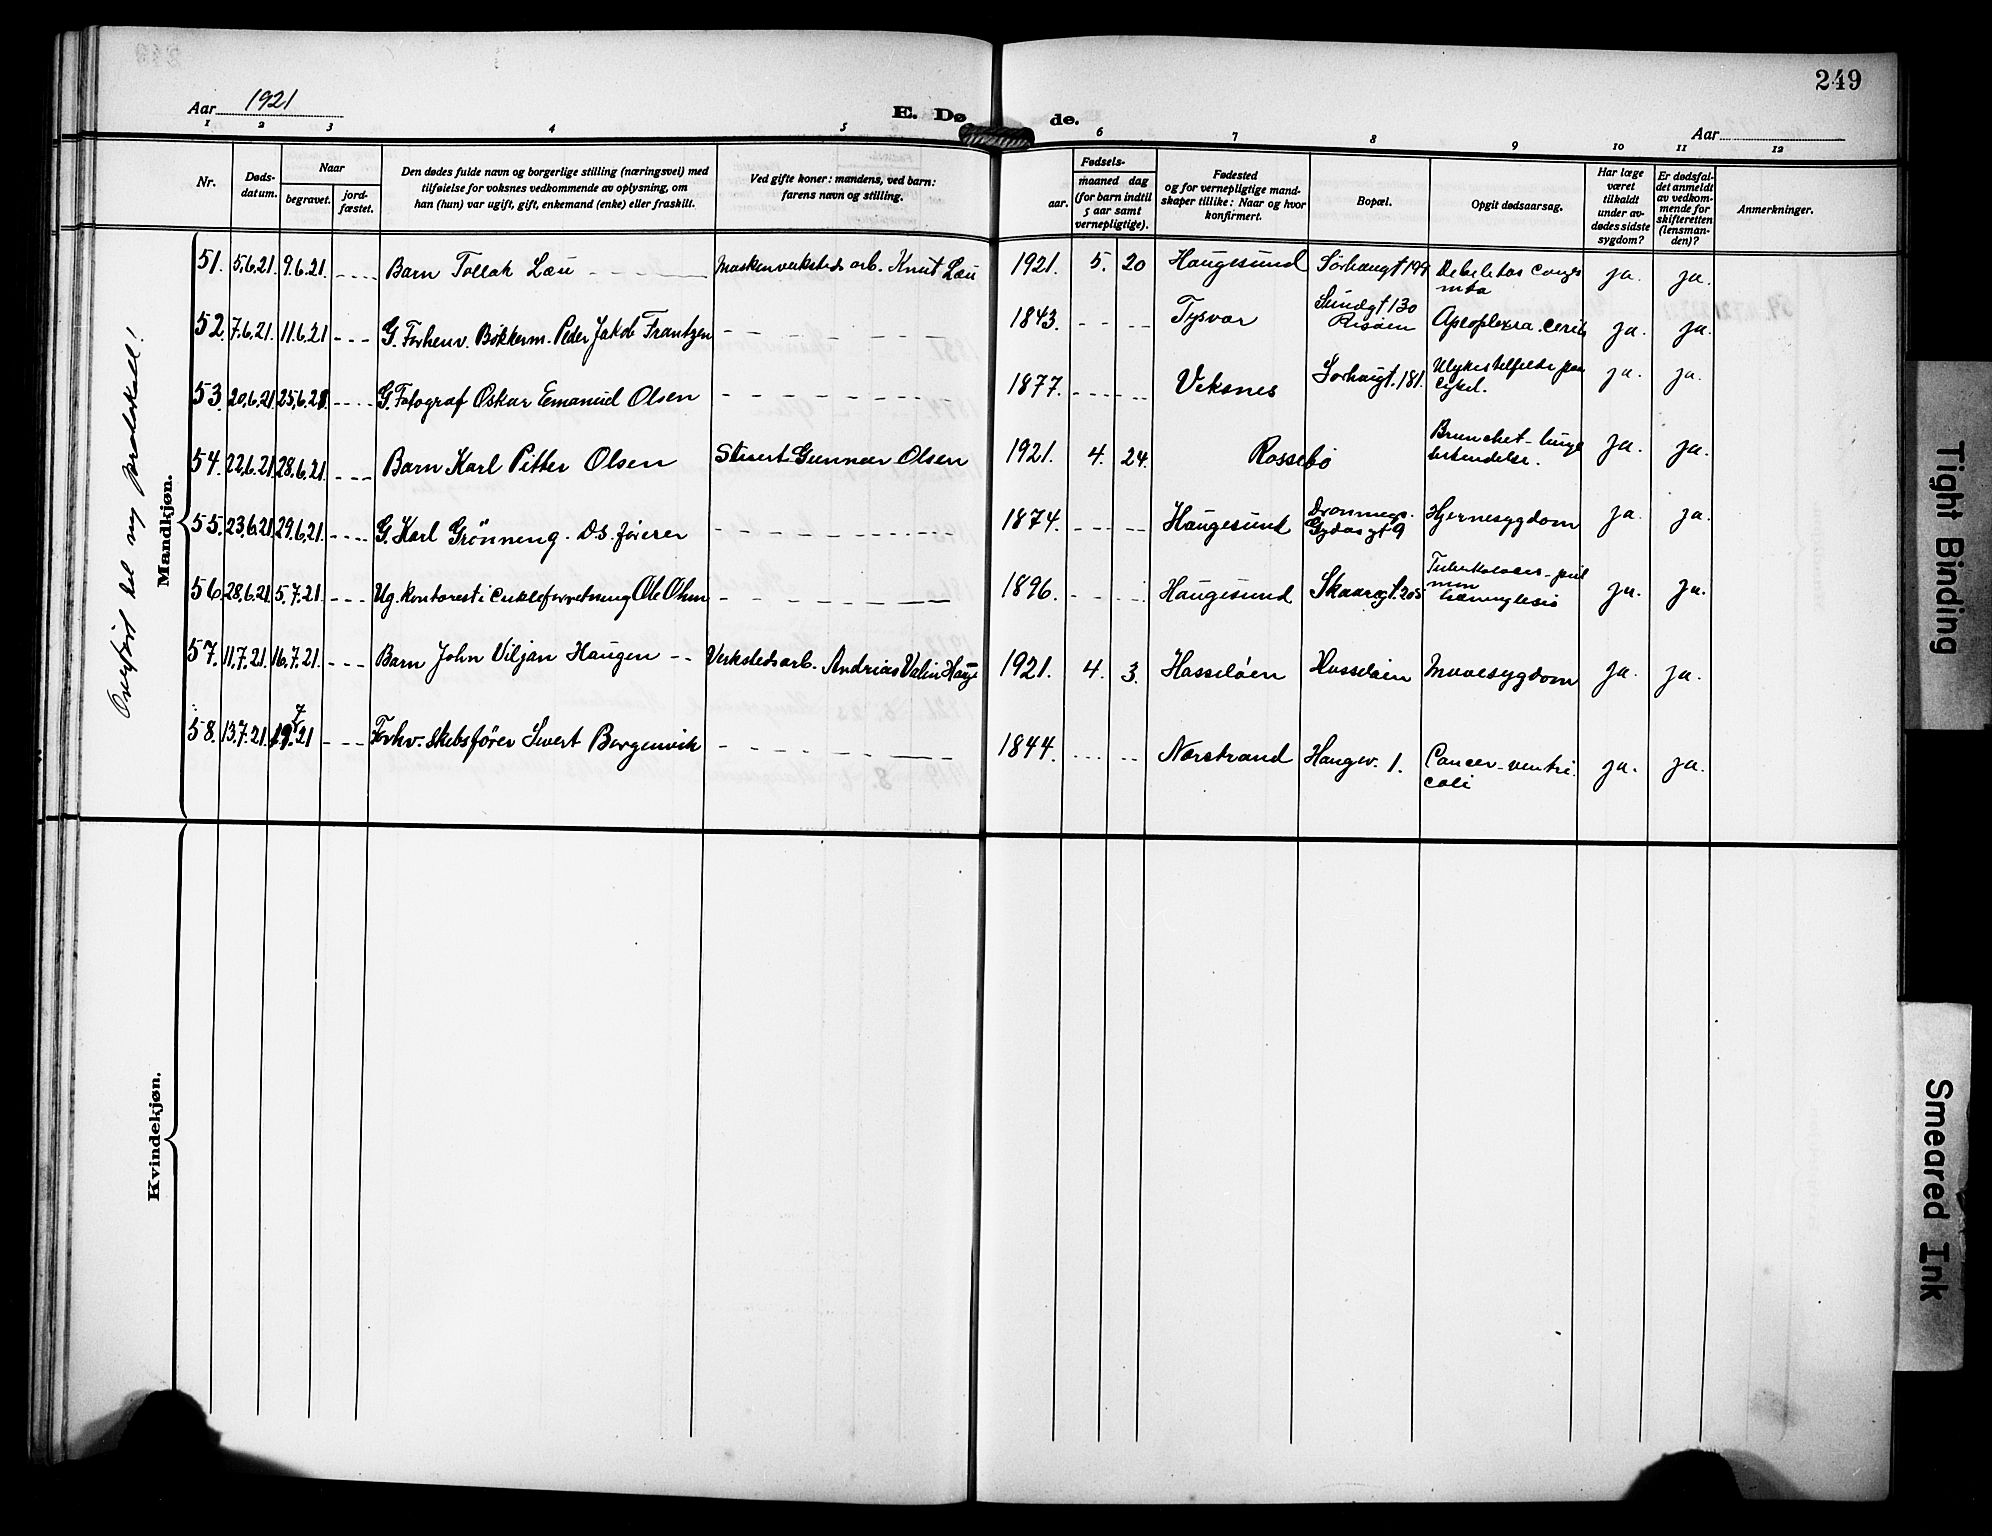 249
Aar 1921
E. Dø de.
Aar
1 2 3 4 5 6 7 8 9 10 11 12
Nr.
Døds-
datum.
Naar
begravet.
jord-
fæstet.
Den dødes fulde navn og borgerlige stilling (næringsvei) med
tilføielse for voksnes vedkommende av oplysning, om
han (hun) var ugift, gift, enkemand (enke) eller fraskilt.
Ved gifte koner: mandens, ved barn:
farens navn og stilling.
Fødsels-
aar.
maaned dag
(for barn indtil
5 aar samt
vernepligtige).
Fødested
og for vernepligtige mand-
skaper tillike: Naar og hvor
konfirmert.
Bopæl.
Opgit dødsaarsag.
Har læge
været
tilkaldt
under av-
dødes sidste
sygdom?
Er dødsfal-
det anmeldt
av vedkom-
mende for
skifteretten
(lensman-
den)?
Anmerkninger.
Overført til ny protokoll!
Mandkjøn.
51. 5.6.21 9.6.21. Barn Tollak Lau Maskenverksteds arb. Knut Lau 1921. 5. 20 Haugesund Sørhaugt 199 Debelitas conge
nita ja. ja.
52. 7.6.21 11.6.21 G. Forhenv. Bøkkerm. Peder Jakob Frantzen 1843. Tysvær Sundgt 130
Risøen Apoplexia. cereb ja. ja.
53. 20.6.21 25.6.21. G. Fotograf Oskar Emanuel Olsen 1877. Veksnes Sørhaugt. 181. Ulykestelfelde paa
cykel. ja. ja.
54. 22.6.21 28.6.21. Barn Karl Pitter Olsen Stuert Gunnar Olsen 1921. 4. 24. Rossebø Brunchet-lunge
betendelse. ja. ja.
55. 23.6.21 29.6.21. G. Karl Grönneng. D.S. förerer 1874. Haugesund Dronnings-
Gydasgt 9 Hjernesygdom ja. ja.
56. 28.6.21. 5.7.21. Ug. kontorest i Cykleforretning Ole Olsen 1896. Haugesund Skaaregt. 205 Tuberkoloses-pul
mon
ja. ja.
57. 11.7.21. 16.7.21. Barn John Viljan Haugen Verkstedsarb. Andrias Valin Hauge 1921. 4. 3. Hasseløen Hasseløen Mavesygdom ja. ja.
58. 13.7.21. 19.7.21 Forhv. Skebsfører Sivert Borgenvik 1844. Nerstrand Haugv. 1. Cancer-ventri
coli ja. ja.
Kvindekjøn.
Tight Binding
Smeared Ink